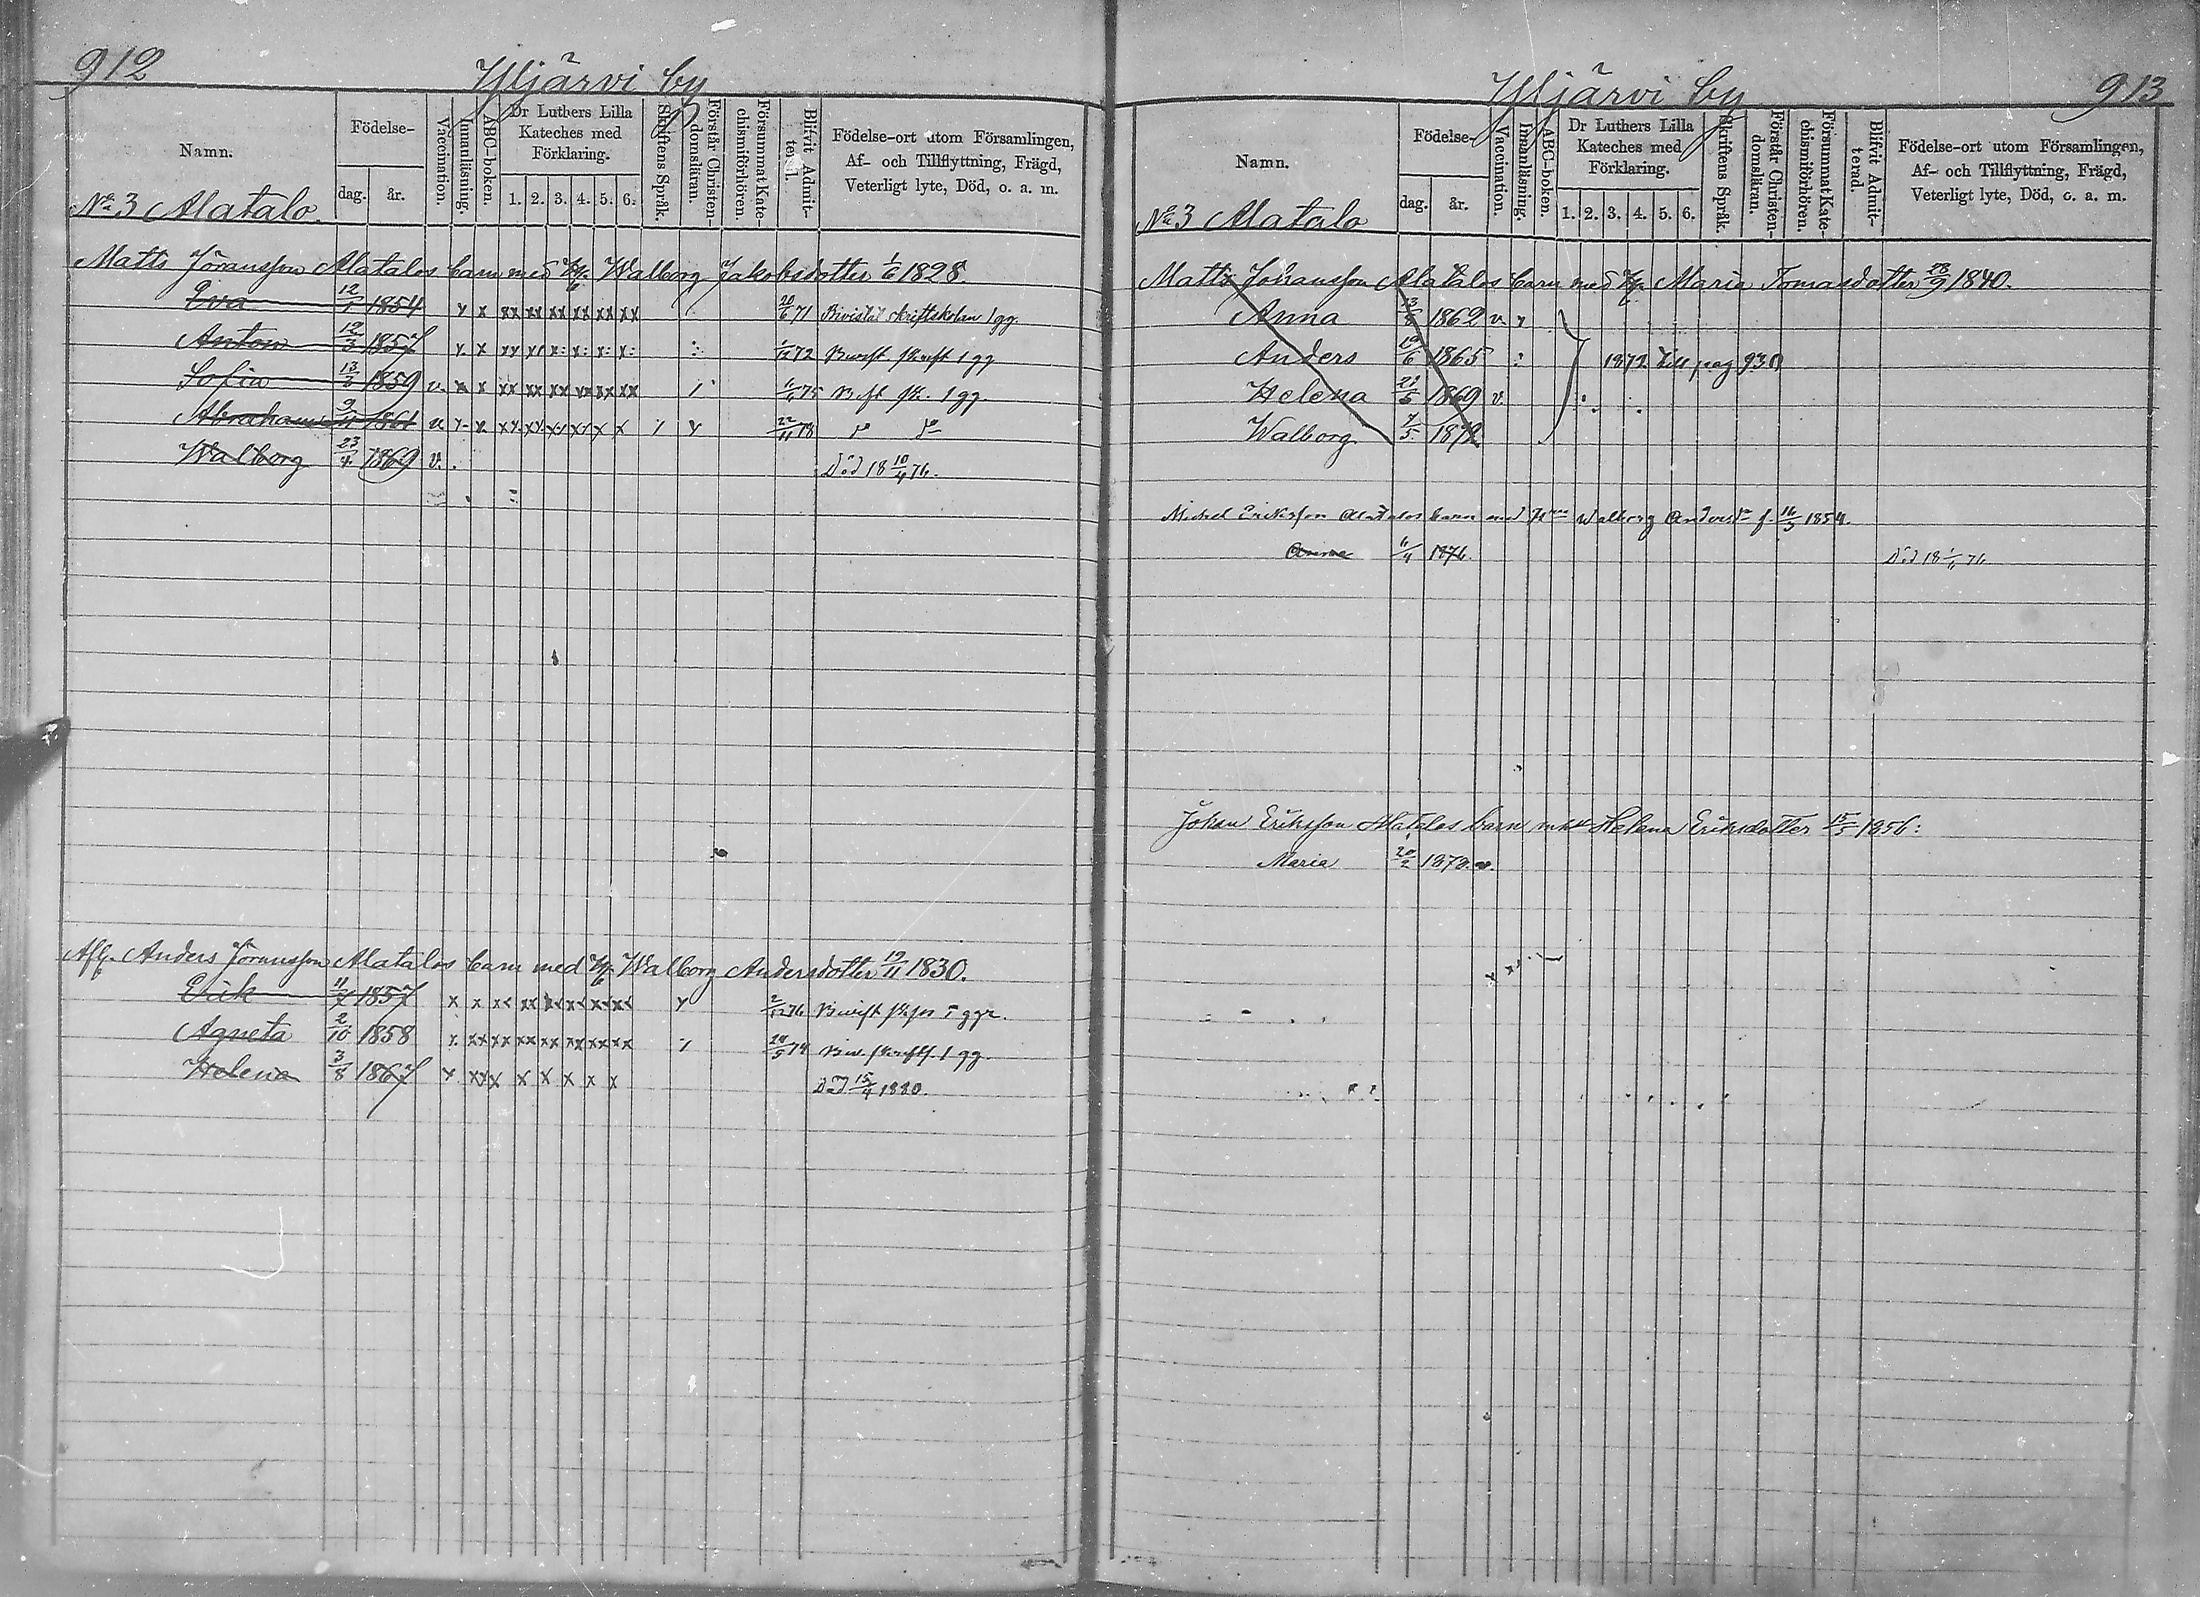 912
Yljärvi by
Namn.
Födelse-
dag.
år.
Vaccination.
Innanläsning.
ABC-boken.
Dr Luthers Lilla Kateches med Förklaring.
1. 2. 3. 4. 5. 6.
Skriftens Språk.
Förstår Christen-domsläran.
Försummat Kate-chismiförhören.
Blifvit Admit-terad.
Födelse-ort utom Församlingen,
Af- och Tillflyttning, Frägd,
Veterligt lyte, Död, o. a. m.
No 3 Alatalo.
Matts Jöransson Alatalos barn med H. Walborg Jakobsdotter 1/6 1828.
Eva 12/1 1854 x x xx xx xx xx xx xx 20/6 71 Bivistat skriftskolan 1 gg
Anton 12/3 1857 x x 72 1 gg
Sofia 1859 v. x x xx xx xx xx xx xx 75 1 gg.
Abraham 1861 v. x x 22/11 78
Walborg 23/4 1869 v. Död 18 10/4 76.
Afl. Anders Jöransson Alatalos barn med H. Walborg Andersdotter 19/11 1830.
Erik 11/7 1857 x x xx xx xx xx xx 76 ggr.
Agneta 2/10 1858 x xx xx xx xx xx xx xx 20/5 74 1 gg.
Helena 3/8 1867 x xxx x x x x x Död 15/4 1880.
Yljärvi by
913
Namn.
Födelse-
dag.
år.
Vaccination.
Innanläsning.
ABC-boken.
Dr Luthers Lilla Kateches med Förklaring.
1. 2. 3. 4. 5. 6.
Skriftens Språk.
Förstår Christen-domsläran.
Försummat Kate-chismiförhören.
Blifvit Admit-terad.
Födelse-ort utom Församlingen,
Af- och Tillflyttning, Frägd,
Veterligt lyte, Död, o. a. m.
No 3 Alatalo
Matts Johansson Alatalos barn med H. Maria Tomasdotter 28/9 1840.
Anna 13/8 1862 v.
Anders 19/6 1865 1872 till pag 930
Helena 21/5 1869 v.
Walborg 7/5 1872
Michel Eriksson Alatalos barn med Walborg f. 1854.
Anna 1876. Död 18 76
Johan Eriksson Alatalos barn Helena Eriksdotter 15/5 1856:
Maria 20/2 v.